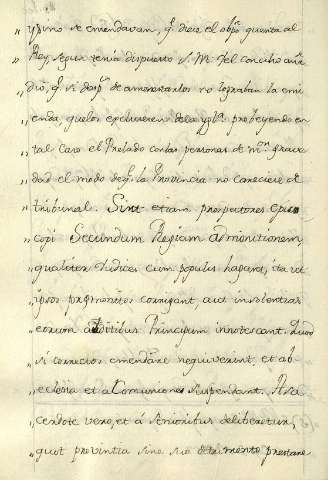 " y si no se emendavan, q.e diese el obp.o quenta al
" Rey, segun tenia dispuesto S. M. y el concilio aña-
" dio, q.e si desp.s de amonestarlos no lograban la emi-
" enda, que los excluiesen de la ygl.a proveyendo en
" tal caso el Prelado con las personas de m.or grave
" dad el modo de q.e la Provincia no careciese de
" tribunal. Sint etiam prospectores epis
" copi Secundum Regiam admonitionem,
" qualiter Iudices cum populis hagant, ita ut
" ipsos premonitos corrigant aut insolentias
" eorum auditibus Principum innotescant. Quod
" si correctos emendare nequiverint, et ab
" eclesia et a Comunione suspendant. A Sa
" cerdote vero, et á Senioribus deliberetur,
" quot provintia sine suo detrimento prestare